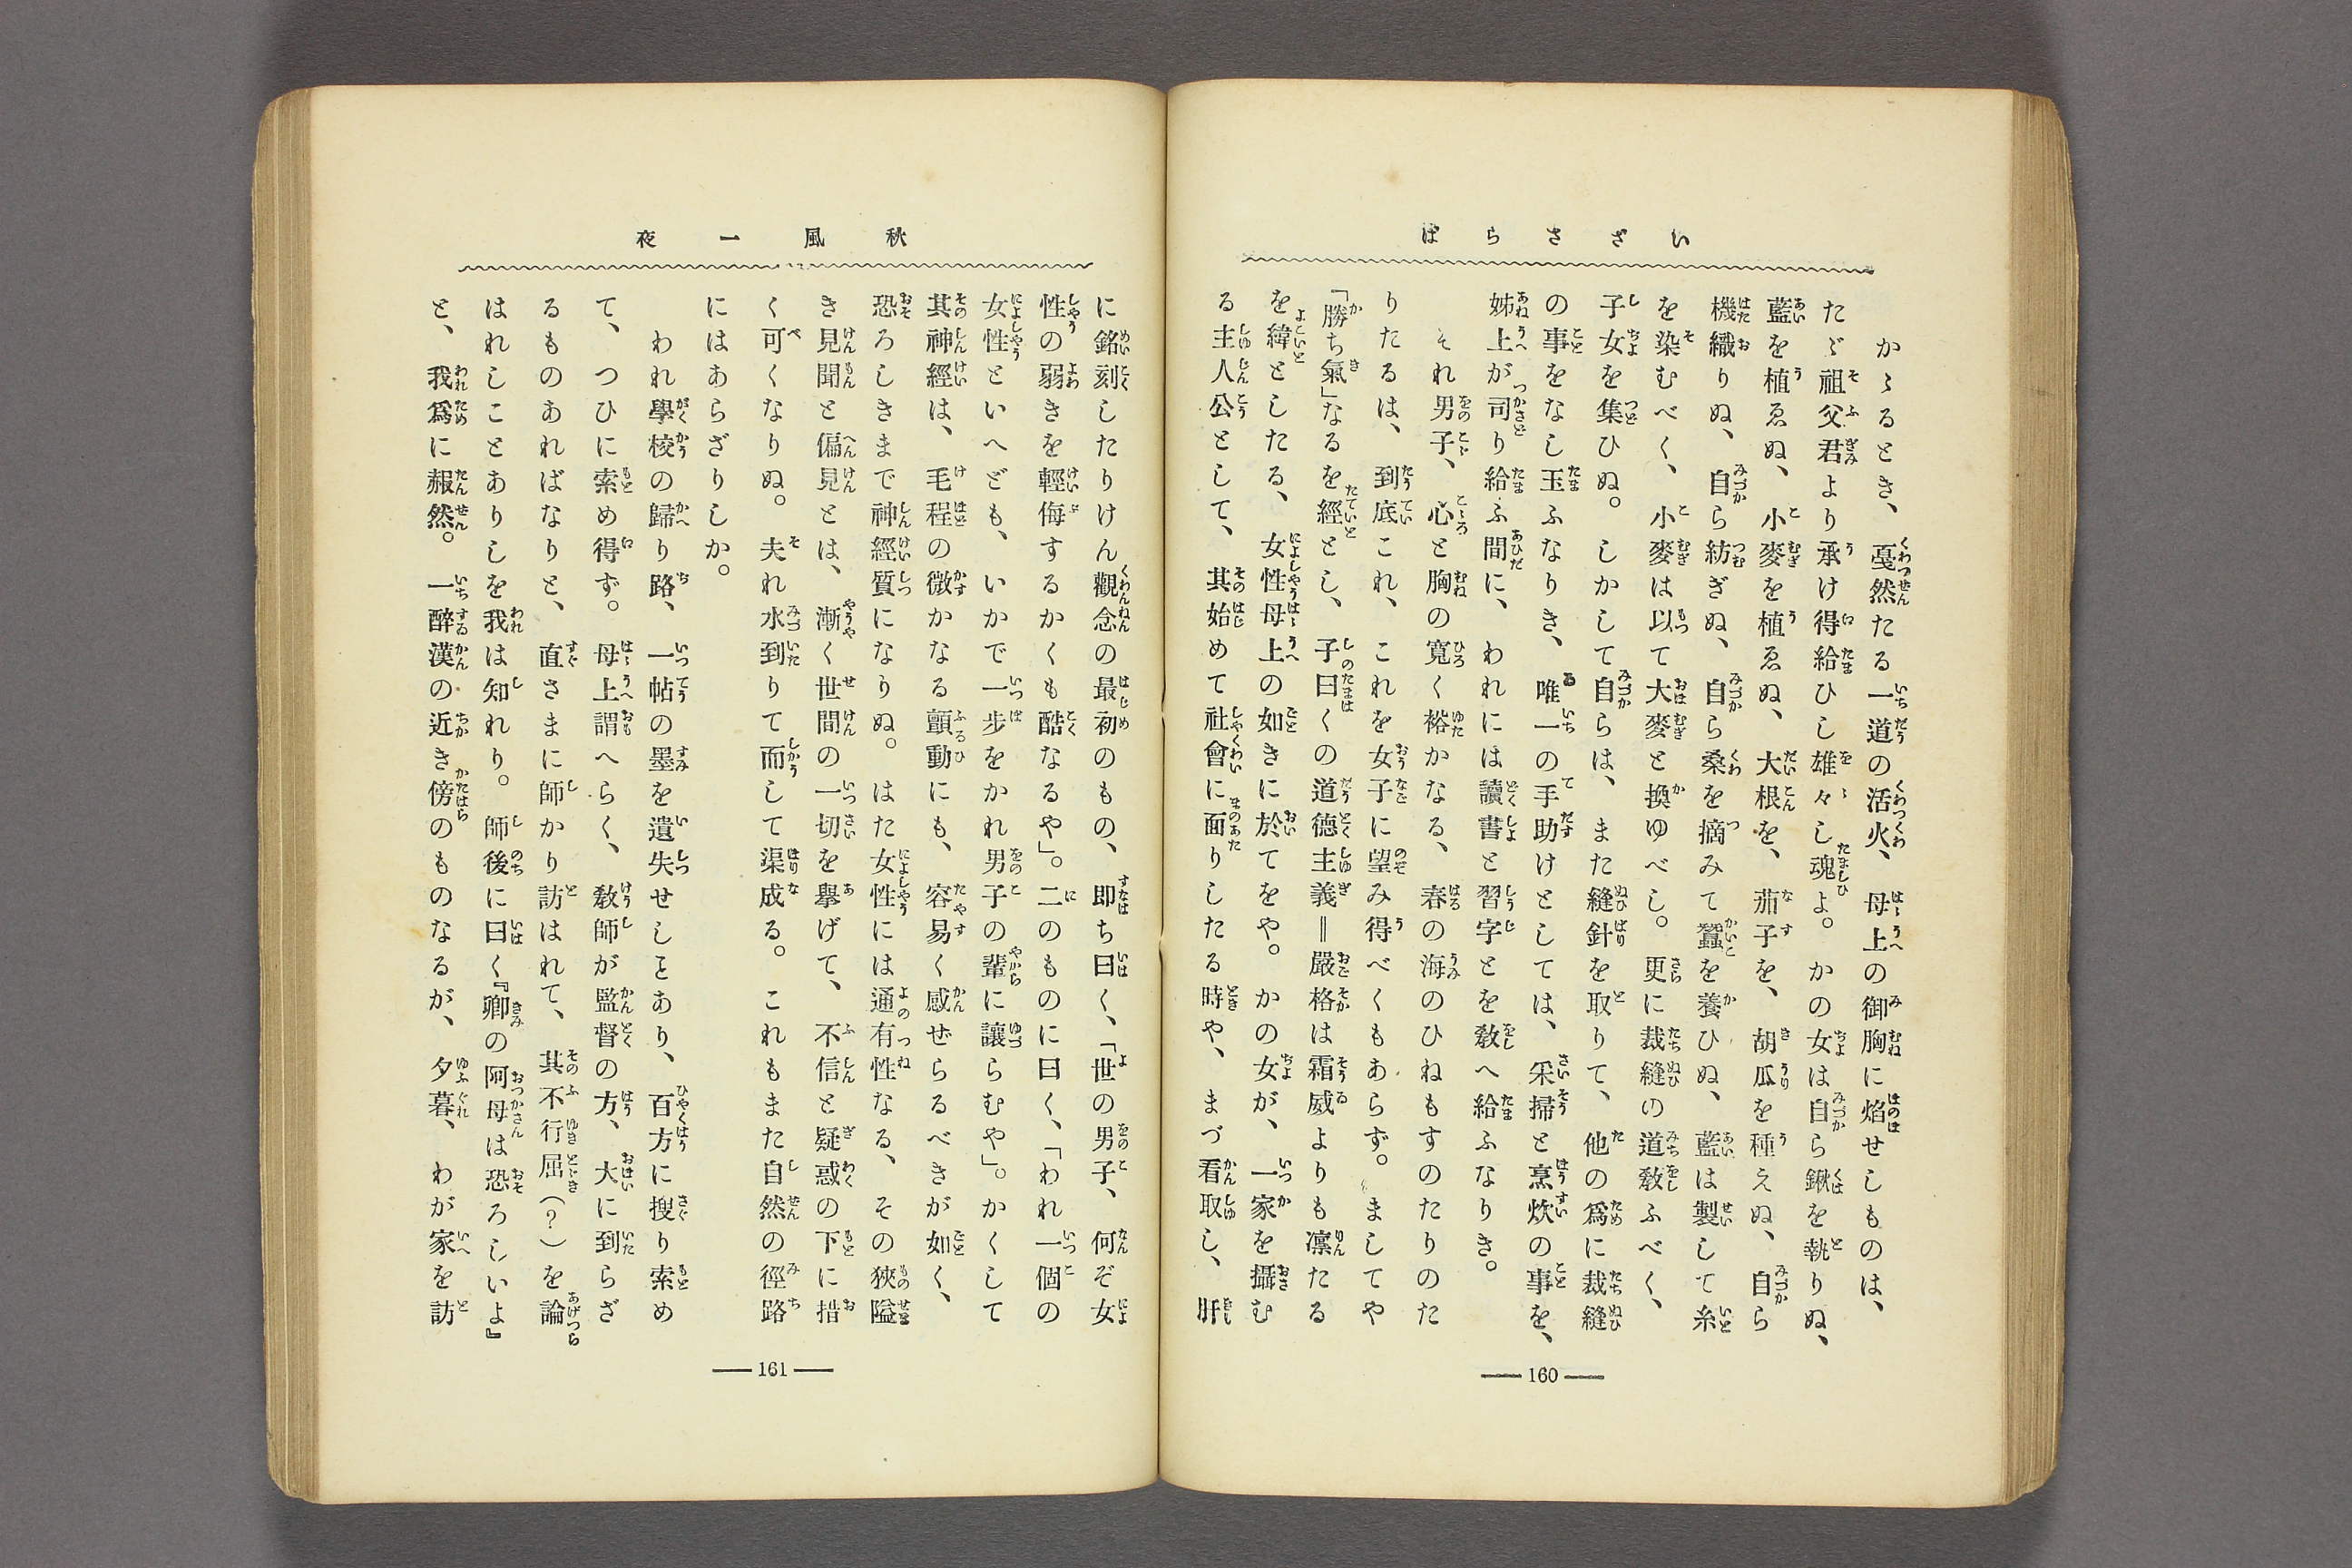 いざさらば
かゝるとき、戞然たる一道の活火、母上の御胸に焰せしものは、
たゞ祖父君より承け得給ひし雄々し魂よ。かの女は自ら鍬を執りぬ、
藍を植ゑぬ、小麥を植ゑぬ、大根を、茄子を、胡瓜を種えぬ、自ら
機織りぬ、自ら紡ぎぬ、自ら桑を摘みて蠶を養ひぬ、藍は製して糸
を染むべく、小麥は以て大麥と換ゆべし。更に裁縫の道敎ふべく、
子女を集ひぬ。しかして自らは、また縫針を取りて、他の爲に裁縫
の事をなし玉ふなりき、唯一の手助けとしては、采掃と烹炊の事を、
姊上が司り給ふ間に、われには讀書と習字とを敎へ給ふなりき。
それ男子、心と胸の寬く裕かなる、春の海のひねもすのたりのた
りたるは、到底これ、これを女子に望み得べくもあらず。ましてや
「勝ち氣」なるを經とし、子曰くの道德主義‖嚴格は霜威よりも凛たる
を緯としたる、女性母上の如きに於てをや。かの女が、一家を攝む
る主人公として、其始めて社會に面りしたる時や、まづ看取し、肝
160
秋風一夜
に銘刻したりけん觀念の最初のもの、卽ち曰く、「世の男子、何ぞ女
性の弱きを輕侮するかくも酷なるや」。二のものに曰く、「われ一個の
女性といへども、いかで一步をかれ男子の輩に讓らむや」。かくして
其神經は、毛程の微かなる顫動にも、容易く感ぜらるべきが如く、
恐ろしきまで神經質になりぬ。はた女性には通有性なる、その狹隘
き見聞と偏見とは、漸く世間の一切を擧げて、不信と疑惑の下に措
く可くなりぬ。夫れ水到りて而して渠成る。これもまた自然の徑路
にはあらざりしか。
われ學校の歸り路、一帖の墨を遺失せしことあり、百方に搜り索め
て、つひに索め得ず。母上謂へらく、敎師が監督の方、大に到らざ
るものあればなりと、直さまに師かり訪はれて、其不行屆(?)を論
はれしことありしを我は知れり。師後に曰く『卿の阿母は恐ろしいよ』
と、我爲に赧然。一醉漢の近き傍のものなるが、夕暮、わが家を訪
161